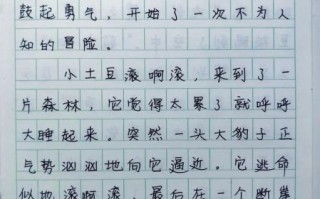 鼓起勇气，开始了一次不为人
知的冒险。
小土豆滚啊滚，来到了一
片森林，它觉得太累了就呼呼
大睡起来。突然一头大豹子正
气势汹汹地向它逼近。它逃命
似地滚啊滚，最后在一个断崖